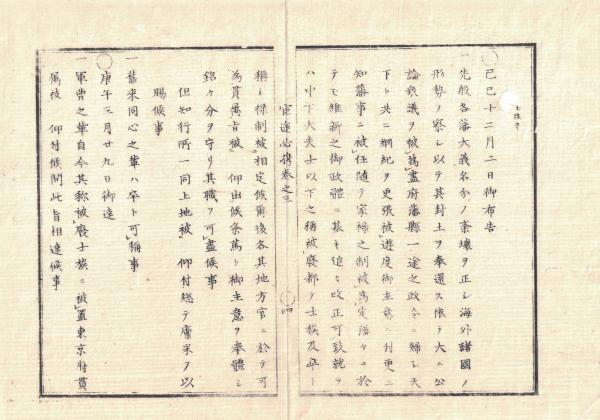 士族卒
己巳十二月二日御布告
一先般各藩大義名分ノ紊壊ヲ正シ海外諸國ノ
形勢ヲ察シ以テ其封土ヲ奉還ス依テ大ニ公
論衆議ヲ被爲盡府藩縣一途之政令ニ歸シ天
下ト共ニ綱紀ヲ更張被遊度御主意ニ付更ニ
知藩事ニ被任随テ家禄之制被爲定藩々ニ於
テモ維新之御政體ニ基キ追々改正可致就ヲ
ハ中下大夫士以下之稱被廢都テ士族及卒ト
官途必携巻之三
十四
稱シ禄制被相定候爾後各其地方官ニ於テ可
為貫属旨被 仰出候条萬ト御主意ヲ奉體シ
銘々分ヲ守リ其職ヲ可盡候事
但知行所一同上地被 仰付総テ廩米ヲ以
賜候事
一舊来同心之輩ハ卒ト可稱事
庚午三月廿九日御達
一軍曹之輩自今其称被廢士族ニ被置東京府貫
属被 仰付候間此旨相達候事